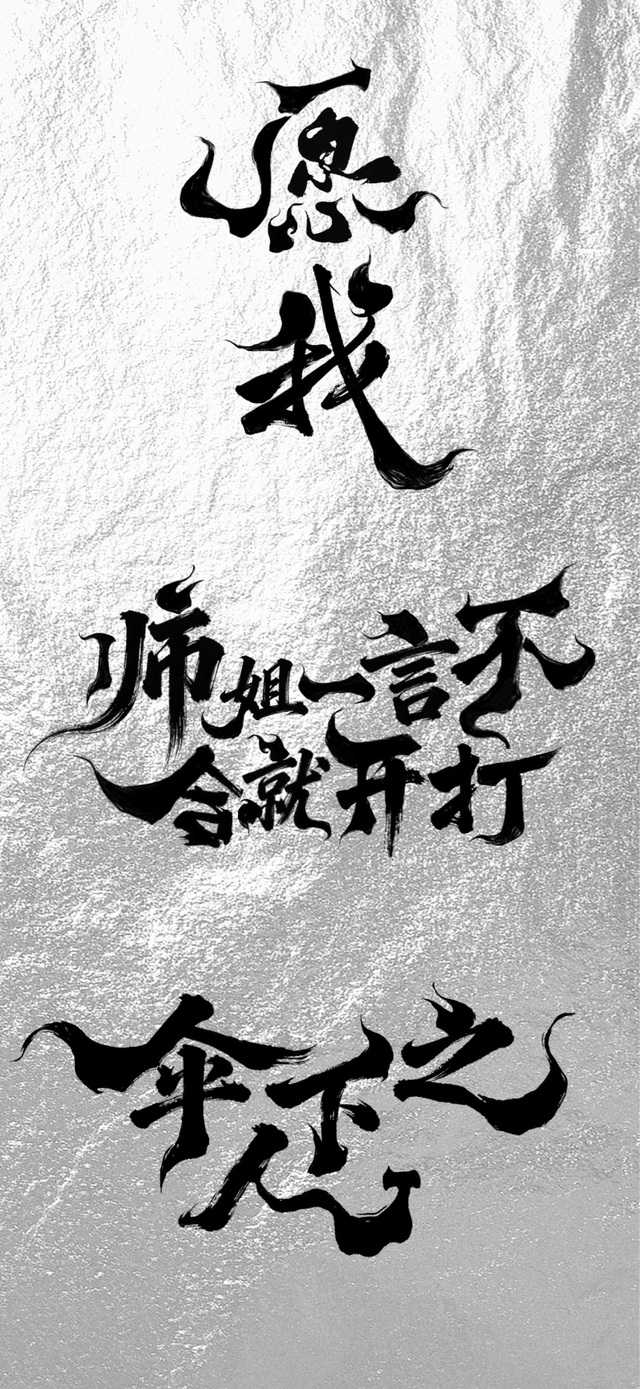 愿
我
师姐一言不
合就开打
伞下之
人